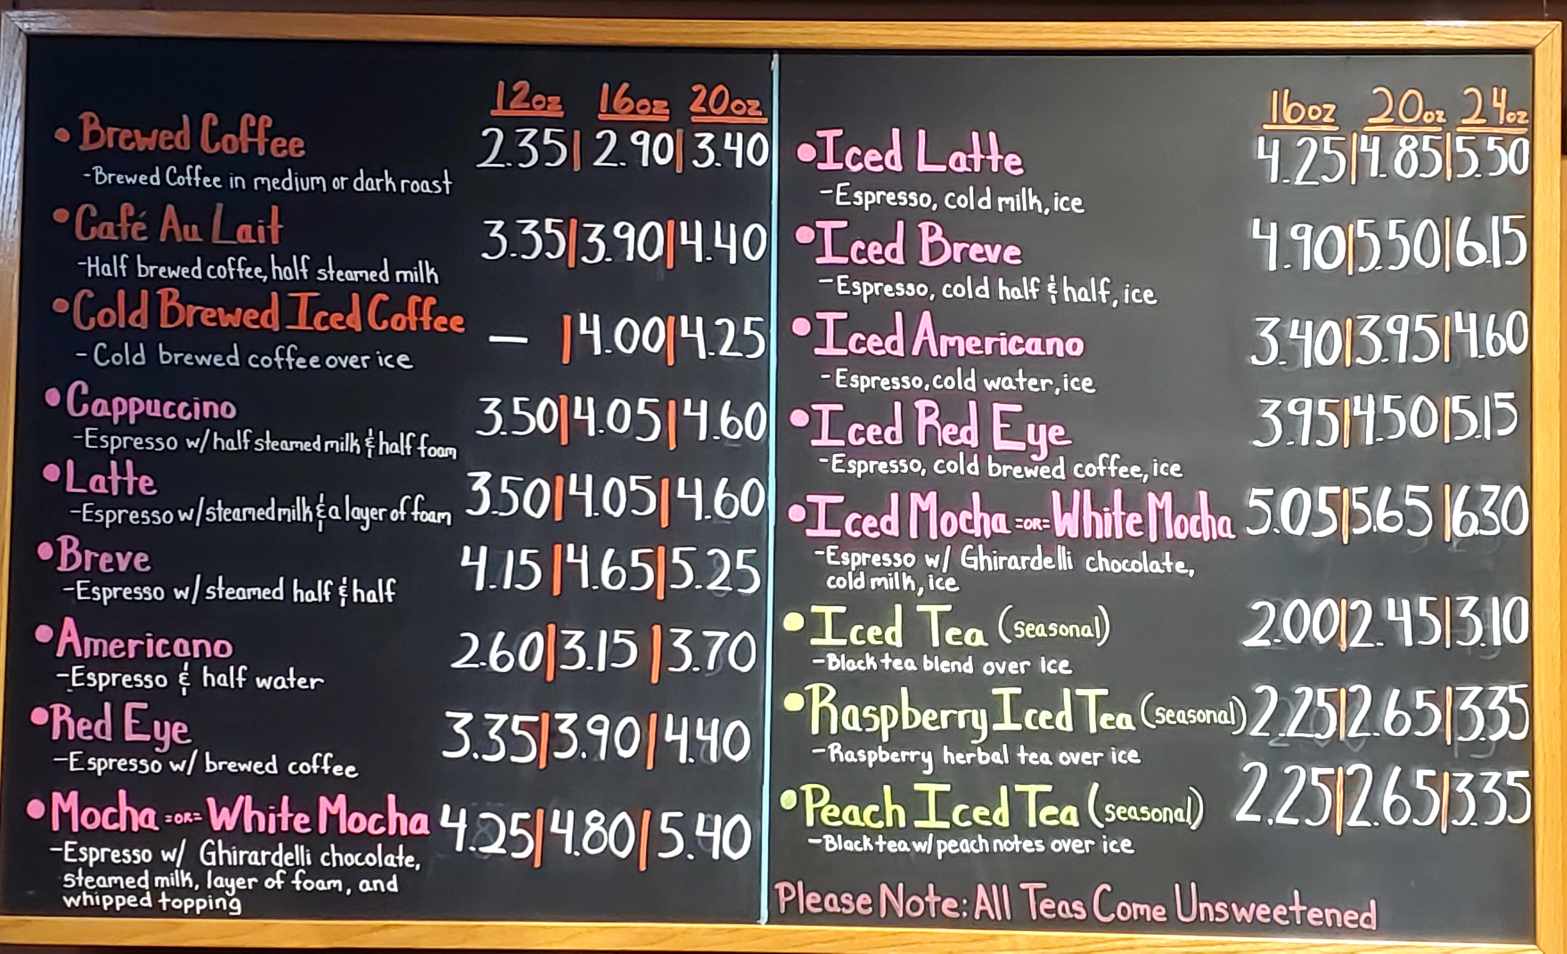 12oz 16oz 20oz
• Brewed Coffee 2.35 | 2.90 | 3.40
-Brewed Coffee in medium or dark roast
• Café Au Lait 3.35 | 3.90 | 4.40
-Half brewed coffee, half steamed milk
• Cold Brewed Iced Coffee — | 4.00 | 4.25
- Cold brewed coffee over ice
• Cappuccino 3.50 | 4.05 | 4.60
-Espresso w/ half steamed milk & half foam
• Latte 3.50 | 4.05 | 4.60
-Espresso w/ steamed milk & a layer of foam
• Breve 4.15 | 4.65 | 5.25
-Espresso w/ steamed half & half
• Americano 2.60 | 3.15 | 3.70
-Espresso & half water
• Red Eye 3.35 | 3.90 | 4.40
-Espresso w/ brewed coffee
• Mocha =OR= White Mocha 4.25 | 4.80 | 5.40
-Espresso w/ Ghirardelli chocolate,
steamed milk, layer of foam, and
whipped topping
16oz 20oz 24oz
• Iced Latte 4.25 | 4.85 | 5.50
-Espresso, cold milk, ice
• Iced Breve 4.90 | 5.50 | 6.15
-Espresso, cold half & half, ice
• Iced Americano 3.40 | 3.95 | 4.60
-Espresso, cold water, ice
• Iced Red Eye 3.95 | 4.50 | 5.15
-Espresso, cold brewed coffee, ice
• Iced Mocha =OR= White Mocha 5.05 | 5.65 | 6.30
-Espresso w/ Ghirardelli chocolate,
cold milk, ice
• Iced Tea (seasonal) 2.00 | 2.45 | 3.10
-Black tea blend over ice
• Raspberry Iced Tea (seasonal) 2.25 | 2.65 | 3.35
-Raspberry herbal tea over ice
• Peach Iced Tea (seasonal) 2.25 | 2.65 | 3.35
-Black tea w/ peach notes over ice
Please Note: All Teas Come Unsweetened